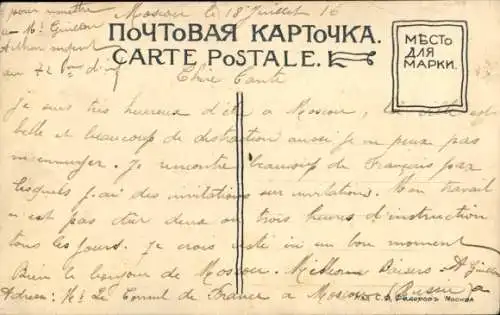 pour remettre
a Mr Guillon
au 72
Moscou le 18 Juillet 16
ПОЧТОВАЯ КАРТОЧКА.
CARTE POSTALE.
МѢСТО
ДЛЯ
МАРКИ.
Chère Tante
Je suis très heureux d'être a Moscou, la ville est
belle et beaucoup de distraction aussi je ne peux pas
m'ennuyer. Je rencontre beaucoup de Français par
lesquels j'ai des invitations sur invitations. Mon travail
n'est pas dur deux ou trois heures d'instruction
tous les jours. Je crois être ici un bon moment
Bien le bonjour de Moscou. Millions Baisers
Adresse: Mr Le Consul de France a Moscou (Russie)
Москва